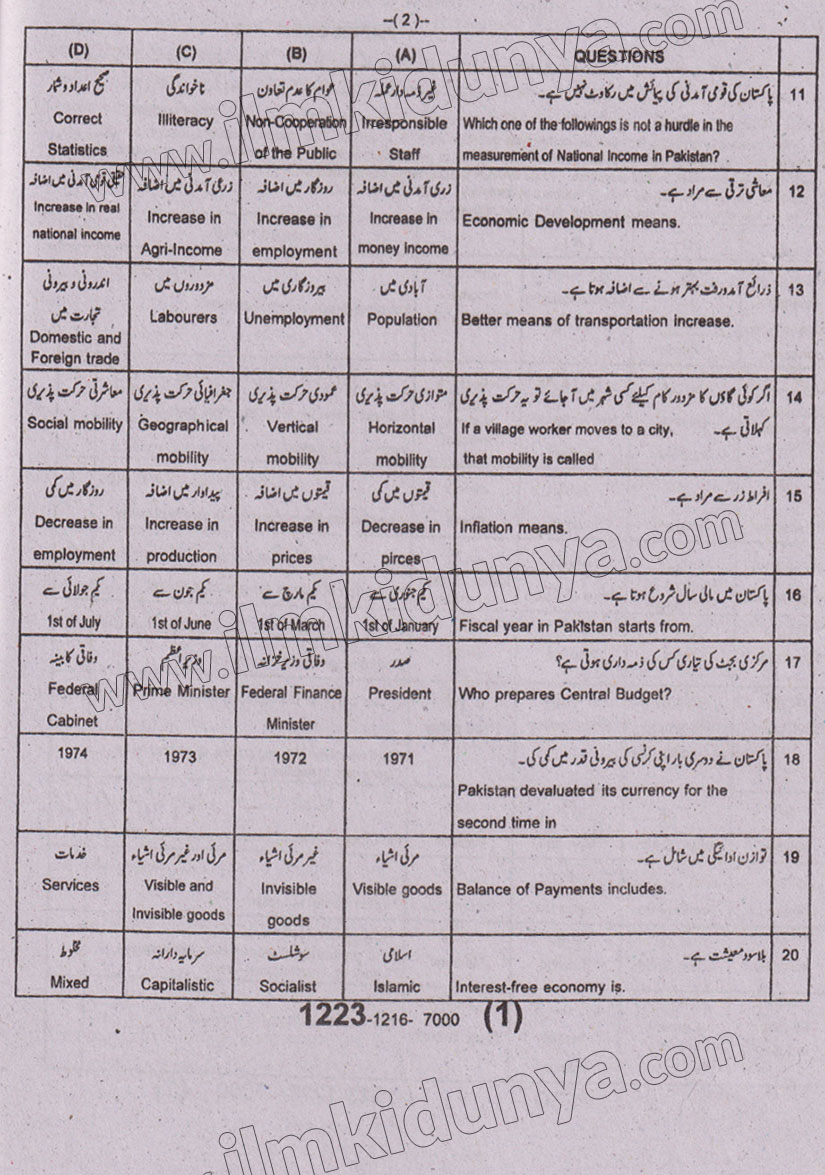 --(2)--
(D) (C) (B) (A) QUESTIONS
صحیح اعداد و شمار ناخواندگی عوام کا عدم تعاون غیر ذمہ دار عملہ پاکستان کی قومی آمدنی کی پیمائش میں رکاوٹ نہیں ہے۔ 11
Correct Illiteracy Non-Cooperation Irresponsible Which one of the followings is not a hurdle in the
Statistics of the Public Staff measurement of National Income in Pakistan?
حقیقی قومی آمدنی میں اضافہ زرعی آمدنی میں اضافہ روزگار میں اضافہ زری آمدنی میں اضافہ معاشی ترقی سے مراد ہے۔ 12
Increase in real Increase in Increase in Increase in Economic Development means.
national income Agri-Income employment money income
اندرونی و بیرونی مزدوروں میں بیروزگاری میں آبادی میں ذرائع آمدورفت بہتر ہونے سے اضافہ ہوتا ہے۔ 13
تجارت میں Labourers Unemployment Population Better means of transportation increase.
Domestic and
Foreign trade
معاشرتی حرکت پذیری جغرافیائی حرکت پذیری عمودی حرکت پذیری متوازی حرکت پذیری اگر کوئی گاؤں کا مزدور کام کیلئے کسی شہر میں آجائے تو یہ حرکت پذیری 14
Social mobility Geographical Vertical Horizontal If a village worker moves to a city, کہلاتی ہے۔
mobility mobility mobility that mobility is called
روزگار میں کمی پیداوار میں اضافہ قیمتوں میں اضافہ قیمتوں میں کمی افراط زر سے مراد ہے۔ 15
Decrease in Increase in Increase in Decrease in Inflation means.
employment production prices pirces
یکم جولائی سے یکم جون سے یکم مارچ سے یکم جنوری سے پاکستان میں مالی سال شروع ہوتا ہے۔ 16
1st of July 1st of June 1st of March 1st of January Fiscal year in Pakistan starts from.
وفاقی کابینہ وزیر اعظم وفاقی وزیر خزانہ صدر مرکزی بجٹ کی تیاری کس کی ذمہ داری ہوتی ہے؟ 17
Federal Prime Minister Federal Finance President Who prepares Central Budget?
Cabinet Minister
1974 1973 1972 1971 پاکستان نے دوسری بار اپنی کرنسی کی بیرونی قدر میں کمی کی۔ 18
Pakistan devaluated its currency for the
second time in
خدمات مرئی اور غیر مرئی اشیاء غیر مرئی اشیاء مرئی اشیاء توازن ادائیگی میں شامل ہے۔ 19
Services Visible and Invisible Visible goods Balance of Payments includes.
Invisible goods goods
مخلوط سرمایہ دارانہ سوشلسٹ اسلامی بلاسود معیشت ہے۔ 20
Mixed Capitalistic Socialist Islamic Interest-free economy is.
1223-1216- 7000 (1)
www.ilmkidunya.com
www.ilmkidunya.com
www.ilmkidunya.com